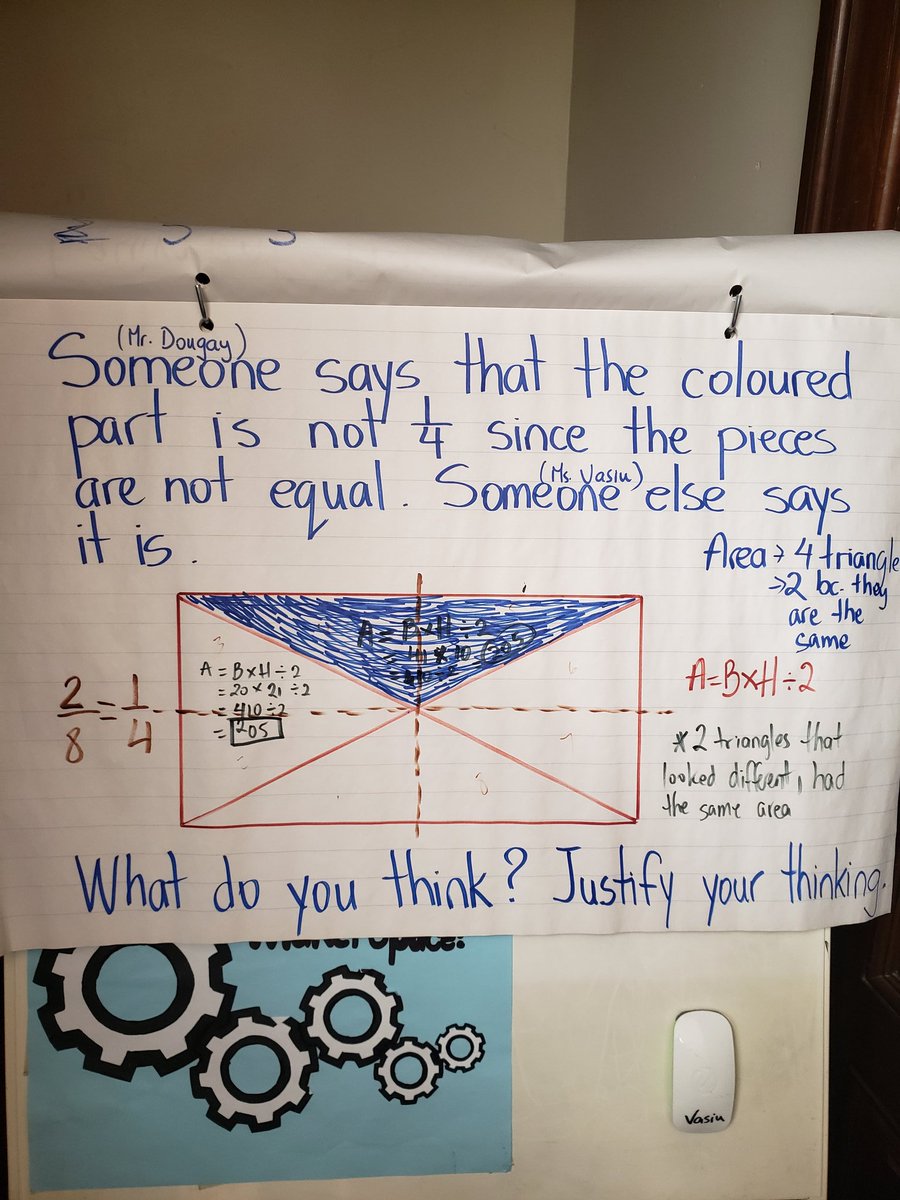 (Mr. Dougay)
Someone says that the coloured
part is not 1/4 since the pieces
are not equal. Someone else says
(Ms. Vasiu)
it is.
Area → 4 triangle
→2 bc. they
are the
same
A = BxH÷2
A = BxH÷2
= 20 x 21 ÷2
= 410 ÷2
= 205
2/8 = 1/4
A=BxH÷2
*2 triangles that
looked different, had
the same area
What do you think? Justify your thinking.
Vasiu